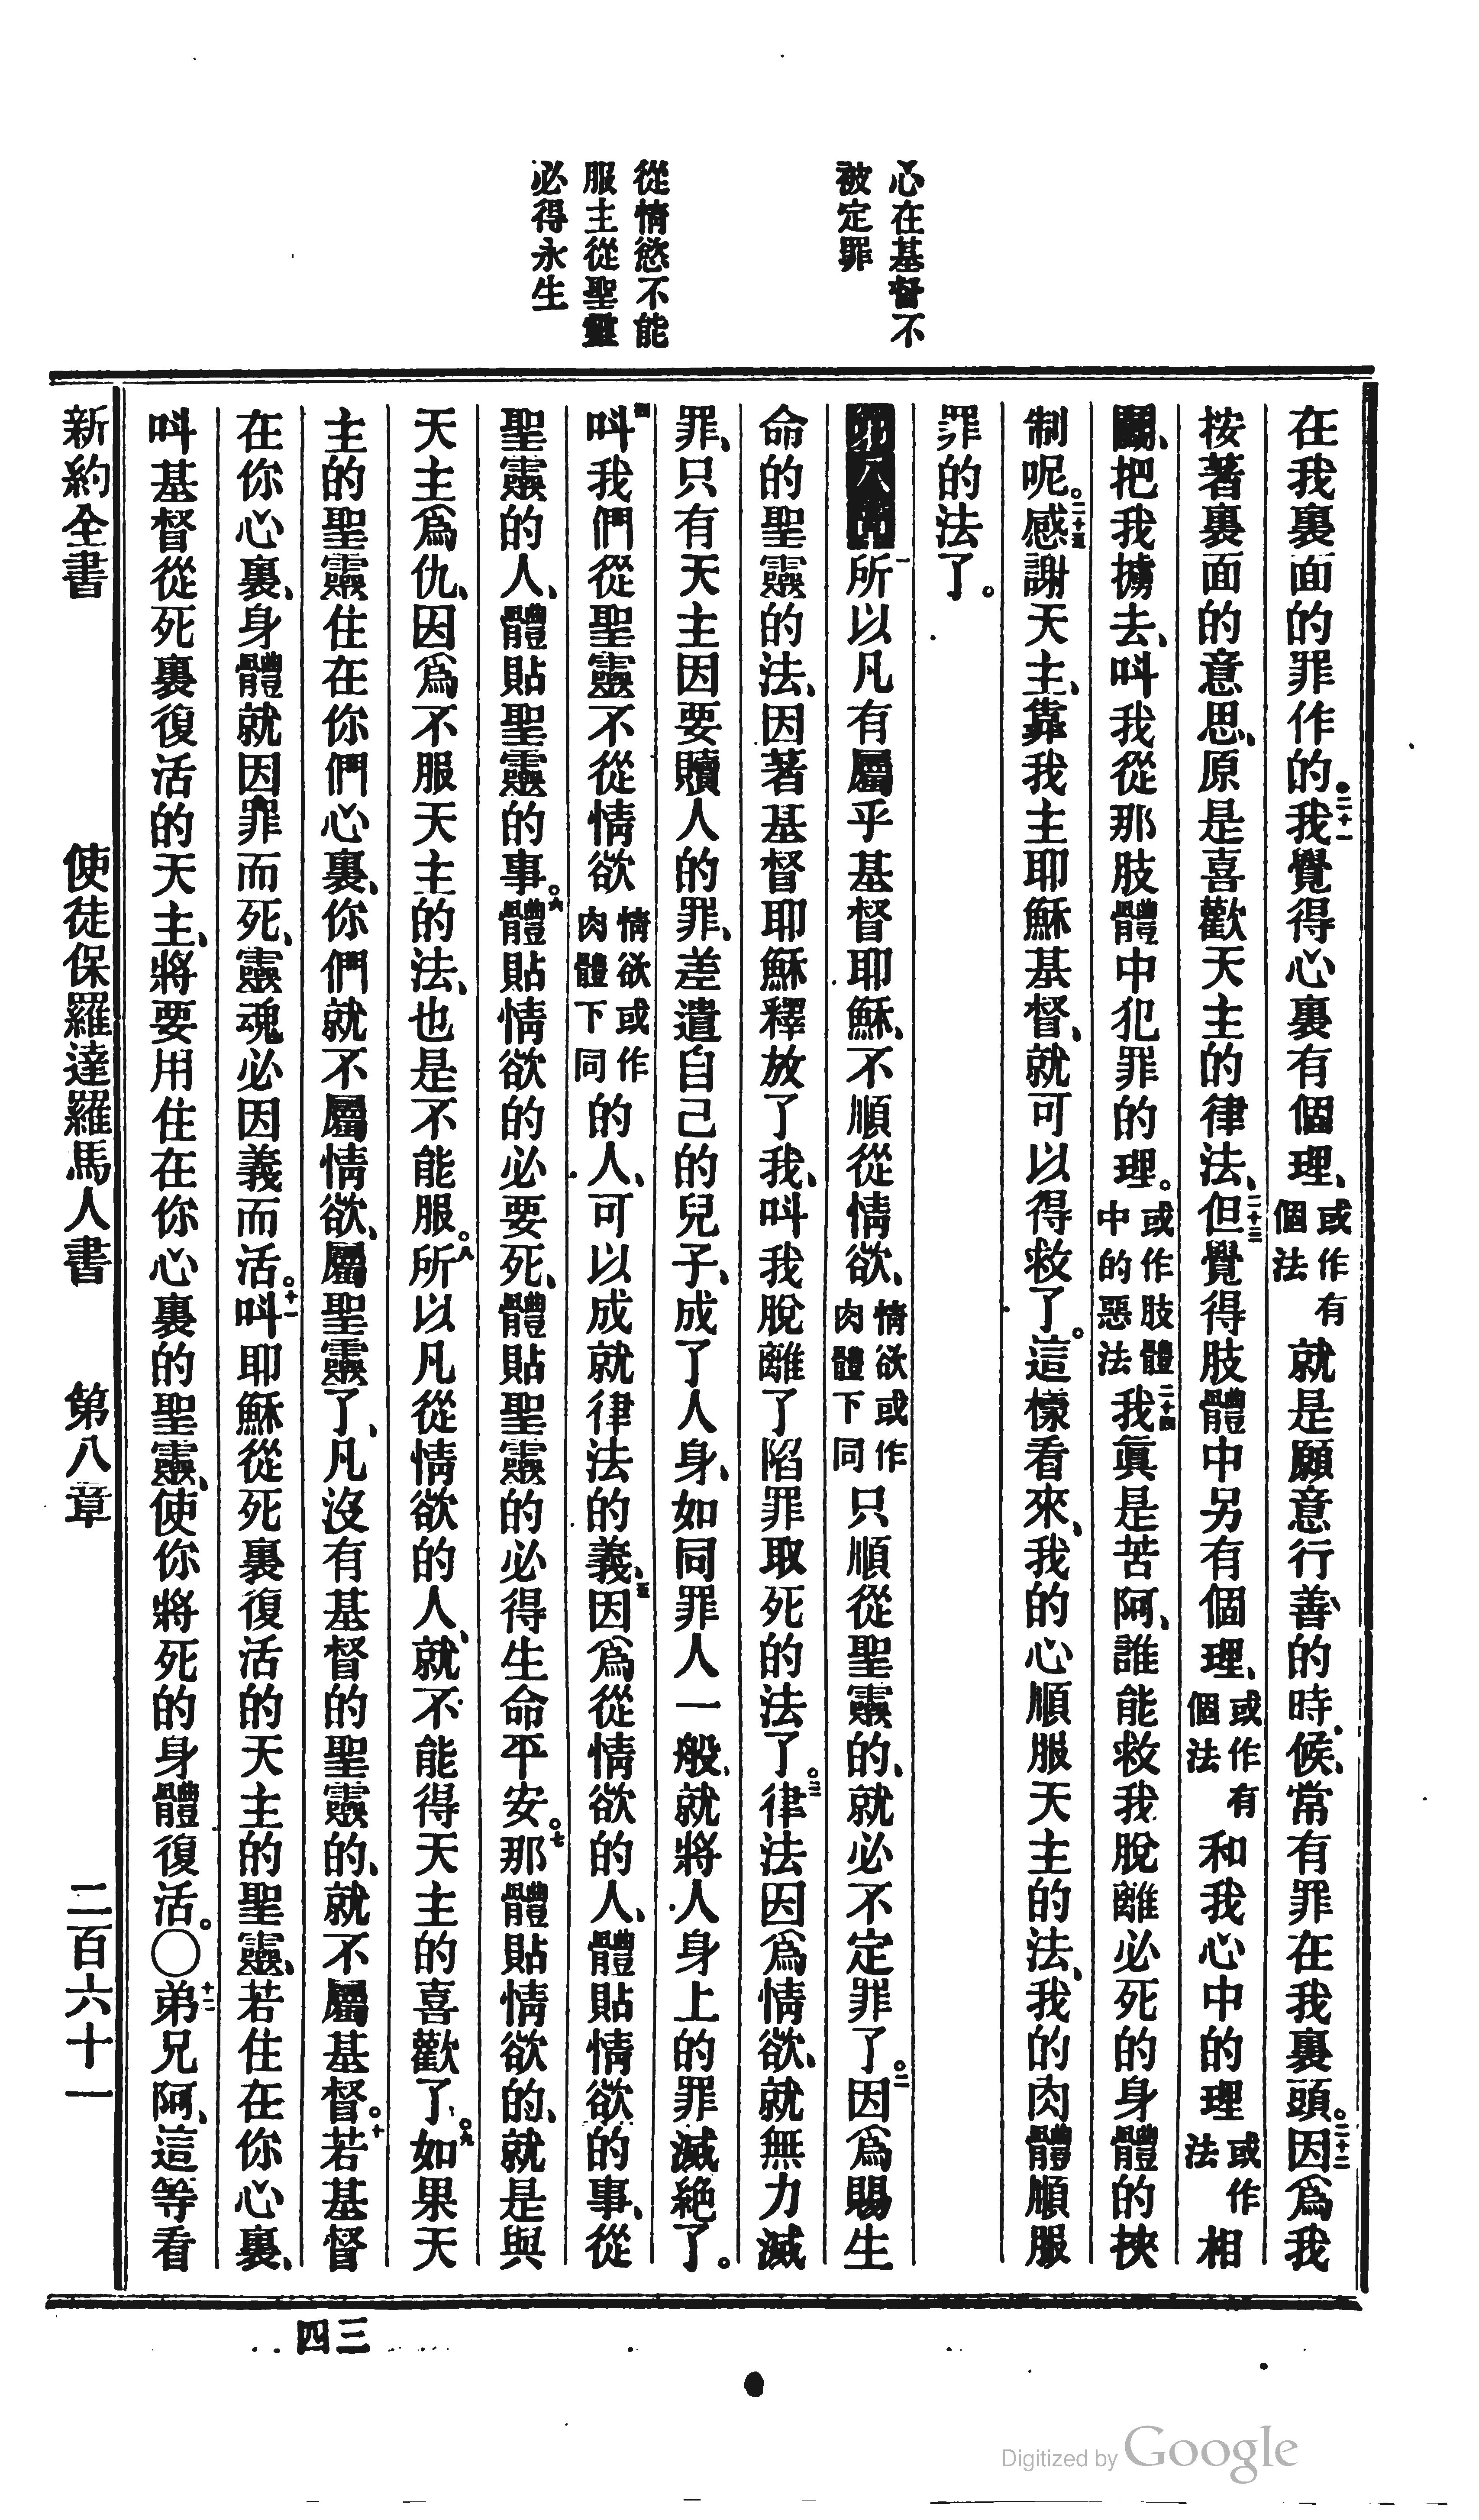 心在基督不
被定罪
從情慾不能
服主從聖靈
必得永生
在我裏面的罪作的。二十一我覺得心裏有個理、或作有個法就是願意行善的時候、常有罪在我裏頭。二十二因爲我
按著裏面的意思、原是喜歡天主的律法、二十三但覺得肢體中另有個理、或作有個法和我心中的理或作法相
鬭、把我擄去、叫我從那肢體中犯罪的理。或作肢體中的惡法二十四我眞是苦阿、誰能救我脫離必死的身體的挾
制呢。二十五感謝天主、靠我主耶穌基督、就可以得救了。這樣看來、我的心順服天主的法、我的肉體順服
罪的法了。
一所以凡有屬乎基督耶穌、不順從情欲、情欲或作肉體下同只順從聖靈的、就必不定罪了。二因爲賜生
命的聖靈的法、因著基督耶穌釋放了我、叫我脫離了陷罪取死的法了。三律法因爲情欲、就無力滅
罪、只有天主因要贖人的罪、差遣自己的兒子、成了人身、如同罪人一般、就將人身上的罪滅絕了。
四叫我們從聖靈不從情欲情欲或作肉體下同的人、可以成就律法的義、五因爲從情欲的人、體貼情欲的事、從
聖靈的人、體貼聖靈的事。六體貼情欲的必要死、體貼聖靈的必得生命平安。七那體貼情欲的、就是與
天主爲仇、因爲不服天主的法、也是不能服。八所以凡從情欲的人、就不能得天主的喜歡了。九如果天
主的聖靈住在你們心裏、你們就不屬情欲、屬聖靈了、凡沒有基督的聖靈的、就不屬基督。十若基督
在你心裏、身體就因罪而死、靈魂必因義而活。十一叫耶穌從死裏復活的天主的聖靈、若住在你心裏、
叫基督從死裏復活的天主、將要用住在你心裏的聖靈、使你將死的身體復活。〇十二弟兄阿、這等看
新約全書 使徒保羅達羅馬人書 第八章 二百六十一
三四
Digitized by Google